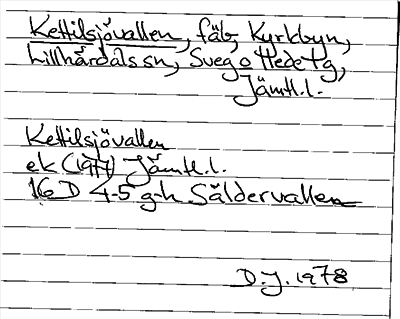 Kettilsjövallen, fäb, Kyrkbyn,
Lillhärdals sn, Sveg o Hede tg,
Jämtl. l.
Kettilsjövallen
ek (1977) Jämtl. l.
16 D 4-5 g-h Säldervallen
D. J. 1978